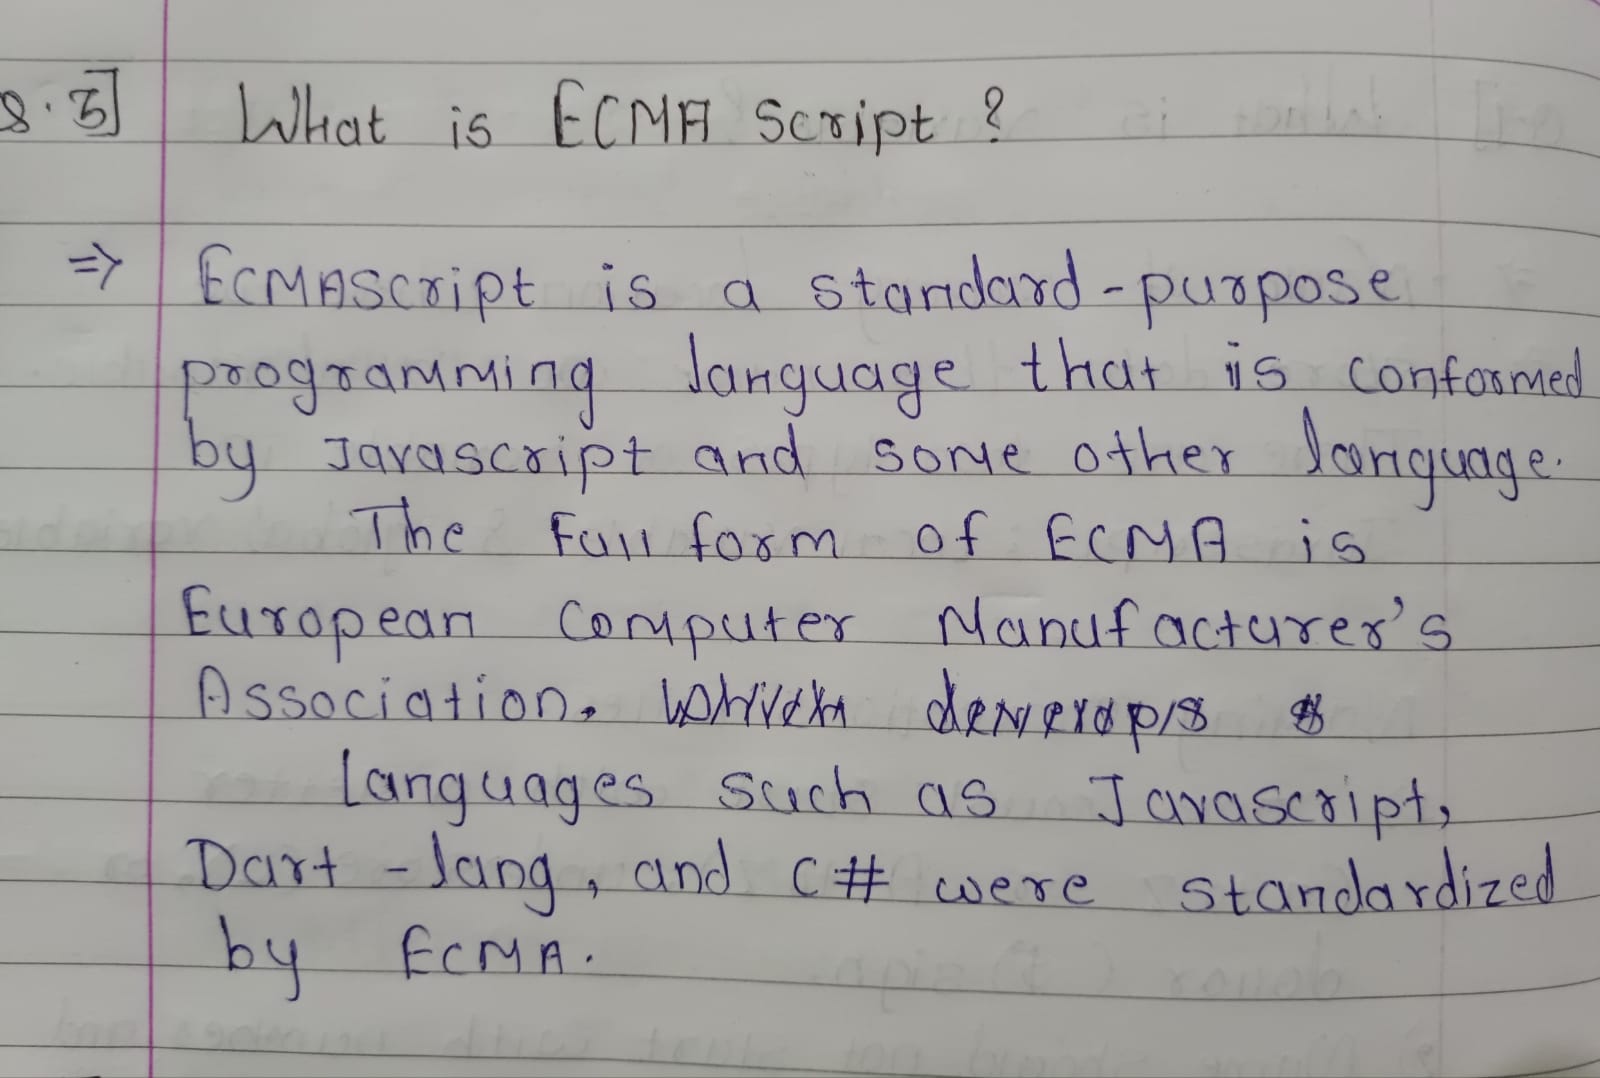 Q.3] What is ECMA Script ?
⇒ ECMAScript is a standard-purpose
programming language that is conformed
by Javascript and some other language.
The Full form of ECMA is
European Computer Manufacturer's
Association.
Languages such as Javascript,
Dart-lang, and C# were standardized
by ECMA.